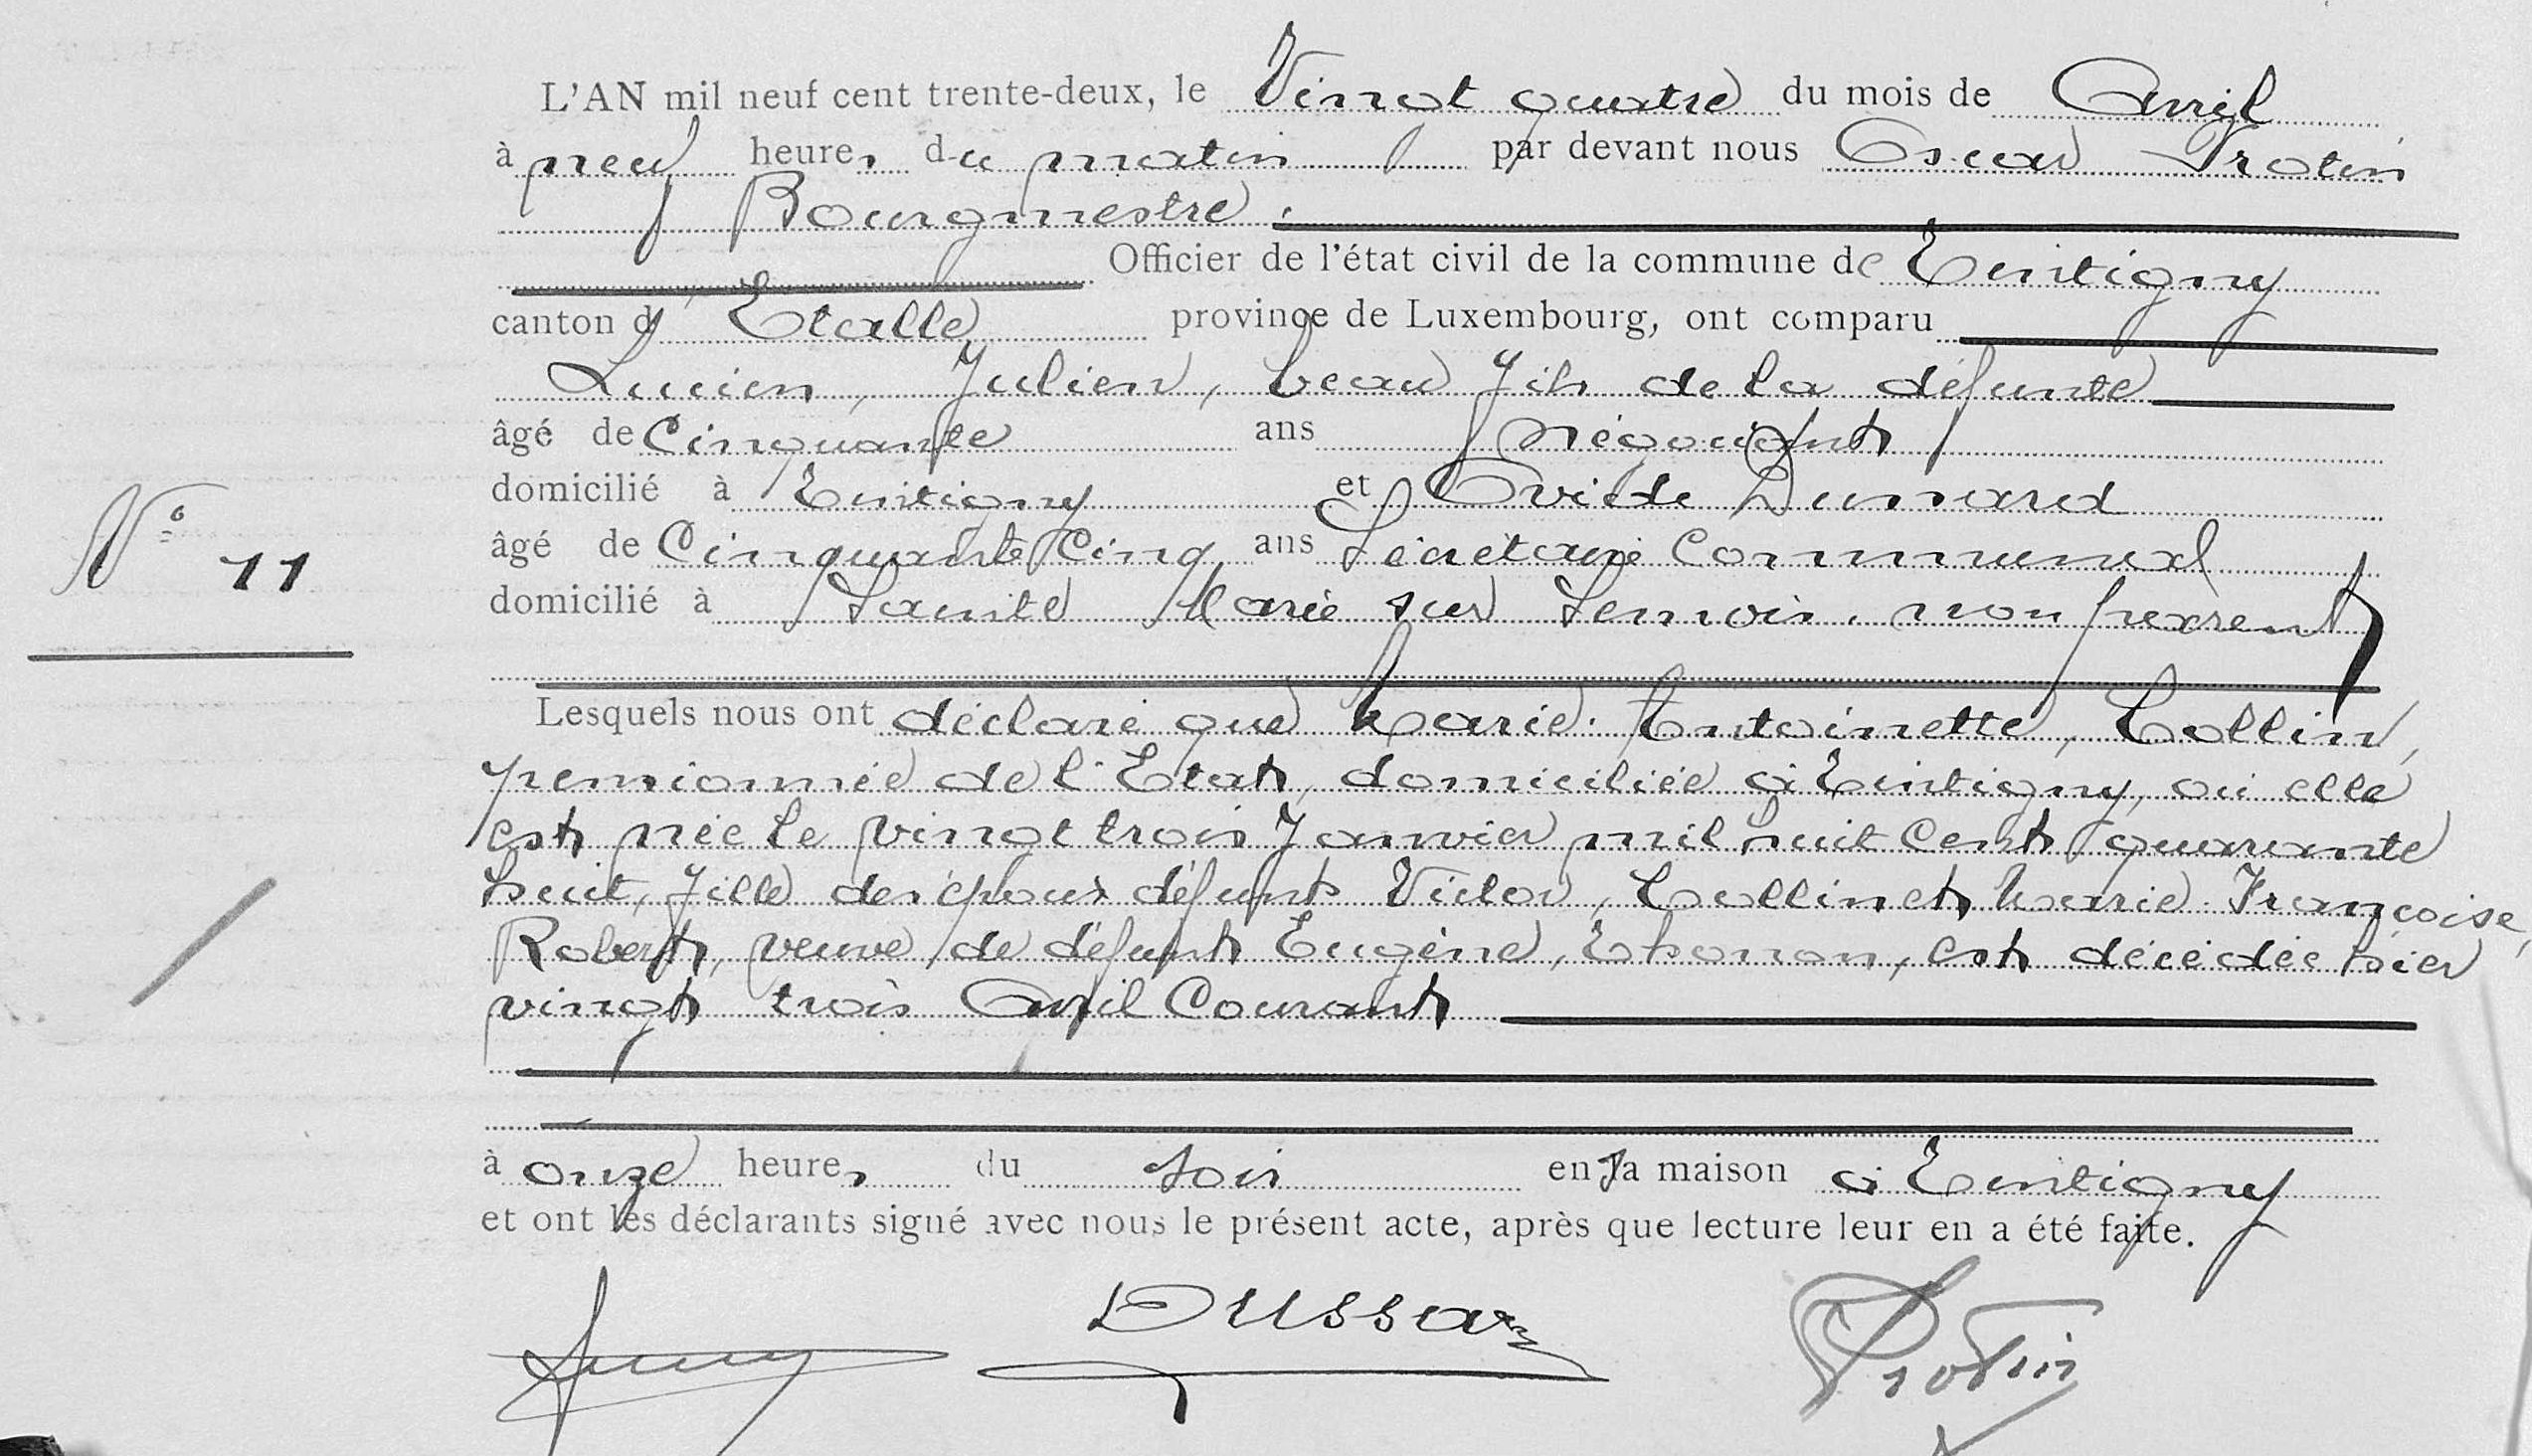 L'AN mil neuf cent trente-deux, le Vingt quatre du mois de Avril
à neuf heures du matin par devant nous Oscar Protin
Bourgmestre
Officier de l'état civil de la commune de Tintigny
canton d'Etalle province de Luxembourg, ont comparu
Lucien, Julien, beau fils de la défunte
âgé de Cinquante ans Négociant
domicilié à Tintigny et Ovide Dussard
N° 11
âgé de Cinquante Cinq ans Secrétaire Communal
domicilié à Sainte Marie sur Semois, non parent
Lesquels nous ont déclaré que Marie-Antoinette, Collin,
pensionnée de l'Etat, domiciliée à Tintigny, où elle
est née le vingt trois Janvier mil huit cent quarante
huit, fille des époux défunts Victor, Collin et Marie-Françoise,
Robert, veuve de défunt Eugène, est décédée hier
vingt trois Avril Courant
à onze heures du soir en sa maison à Tintigny
et ont les déclarants signé avec nous le présent acte, après que lecture leur en a été faite.
Dussard
Protin